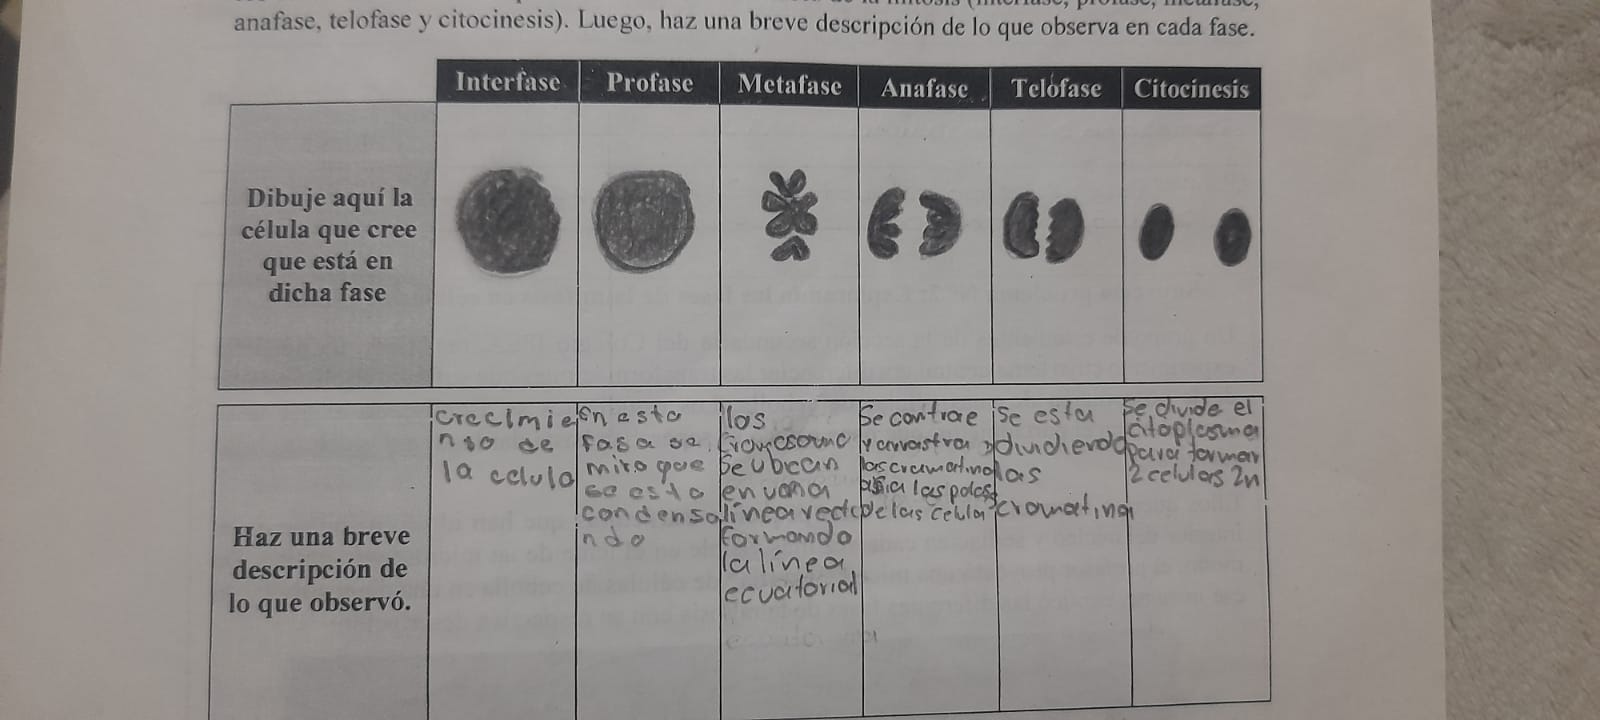 anafase, telofase y citocinesis). Luego, haz una breve descripción de lo que observa en cada fase.
Interfase
Profase
Metafase
Anafase
Telofase
Citocinesis
Dibuje aquí la
célula que cree
que está en
dicha fase
Haz una breve
descripción de
lo que observó.
crecimie
nto de
la celula
En esta
fasa se
miro que
se esta
condensa
ndo
las
se ubican
en una
línea recta
formando
la línea
ecuatorial
Se contrae
y arrastra
asia las polos
de las celula
Se esta
las
cromatina
Se divide el
citoplasma
para formar
2 celulas 2n